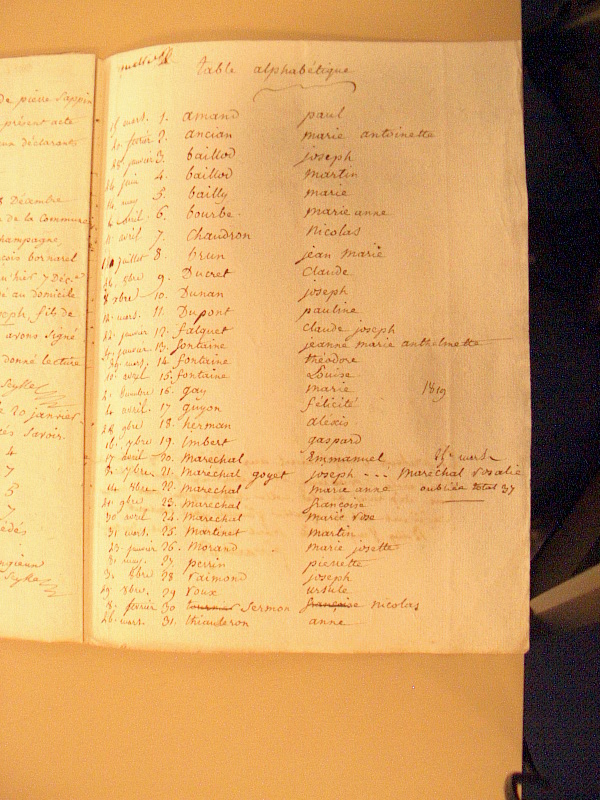 de pierre Sappin
présent acte
un déclarants
8 Décembre
de la commune
champagne
çois bornarel
qu'hier 7 Déc.e
au domicile
joseph, fils de
avons signé
donné lecture
Seyke
20 janvier
savoir.
4
7
5
7
Seyke
table alphabétique
mars. 1. amand paul
février 2. ancian marie antoinette
janvier 3. baillod joseph
14 juin 4. baillod martin
may 5. bailly marie
6 avril 6. bourbe. marie anne
avril 7. Chaudron Nicolas
juillet 8. brun jean marie
9bre 9. Ducret Claude
8 xbre 10. Dunan joseph
mars. 11. Dupont pauline
janvier 12. falquet claude joseph
janvier 13. fontaine jeanne marie anthelmette
mars. 14. fontaine théodore
10 avril 15. fontaine Louise
16. gay marie 1819
4 avril. 17. guyon félicité
9bre 18. herman aléxis
16. 7bre 19. imbert gaspard
17 avril 20. maréchal Emmanuel
8. 7bre 21. maréchal goyet joseph --- Maréchal rosalie
14 8bre 22. maréchal marie anne oubliée total 37
9bre 23. maréchal françoise
30 avril 24. maréchal marie rose
31 mars. 25. martinet martin
23 janvier 26. morand. marie josette
mars. 27 perrin pierrette
3. 8bre 28 raimond joseph
29 roux ursule
8. février 30 Sermon nicolas
26. mars. 31. thiauderon anne